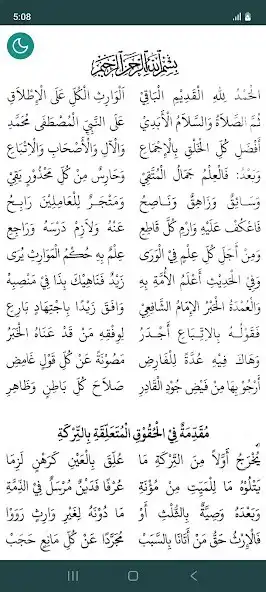 5:08
بِسْمِ اللَّهِ الرَّحْمَنِ الرَّحِيمِ
اَلْحَمْدُ لِلَّهِ الْقَدِيمِ الْبَاقِي اَلْوَارِثِ الْكُلِّ عَلَى الْإِطْلَاقِ
ثُمَّ الصَّلَاةُ وَالسَّلَامُ الْأَبَدِيْ عَلَى النَّبِيِّ الْمُصْطَفَى مُحَمَّدِ
أَفْضَلِ كُلِّ الْخَلْقِ بِالْإِجْمَاعِ وَالْآلِ وَالْأَصْحَابِ وَالْاِتْبَاعِ
وَبَعْدُ: فَالْعِلْمُ جَمَالُ الْمُتَّقِيْ وَحَارِسٌ مِنْ كُلِّ مَحْذُورٍ يَقِيْ
وَسَائِقٌ وَزَاهِقٌ وَنَاصِحُ وَمَتْجَرٌ لِلْعَامِلِيْنَ رَابِحُ
فَاعْكُفْ عَلَيْهِ وَارْمِ كُلَّ قَاطِعِ عَنْهُ وَلَازِمْ دَرْسَهُ وَرَاجِعِ
وَمِنْ أَجَلِّ كُلِّ عِلْمٍ فِي الْوَرَى عِلْمٌ بِهِ حُكْمُ الْمَوَارِثِ يُرَى
وَفِي الْحَدِيْثِ أَعْلَمُ الْأُمَّةِ بِهِ زَيْدٌ فَنَاهِيْكَ بِذَا فِيْ مَنْصِبِهِ
وَالْعُمْدَةُ الْحَبْرُ الْإِمَامُ الشَّافِعِيْ وَافَقَ زَيْدًا بِاجْتِهَادٍ بَارِعِ
فَقَوْلُهُ بِالْاِتِّبَاعِ أَجْدَرُ لِوَفْقِهِ مَنْ قَدْ عَنَاهُ الْخَبَرُ
وَهَاكَ فِيْهِ عُدَّةً لِلْفَارِضِ مَصُوْنَةً عَنْ كُلِّ قَوْلٍ غَامِضِ
أَرْجُوْ بِهَا مِنْ فَيْضِ جُوْدِ الْقَادِرِ صَلَاحَ كُلِّ بَاطِنٍ وَظَاهِرِ
مُقَدِّمَةٌ فِي الْحُقُوْقِ الْمُتَعَلِّقَةِ بِالتَّرِكَةِ
يُخْرَجُ أَوَّلًا مِنَ التَّرْكَةِ مَا عُلِّقَ بِالْعَيْنِ كَرَهْنٍ لَزِمَا
يَتْلُوْهُ مَا لِلْمَيْتِ مِنْ مُؤْنَةِ عُرْفًا فَدَيْنٌ مُرْسَلٌ فِي الذِّمَّةِ
وَبَعْدَهُ وَصِيَّةٌ بِالثُّلْثِ أَوْ مَا دُوْنَهُ لِغَيْرِ وَارِثٍ رَوَوْا
فَالْاِرْثُ حَقُّ مَنْ أَتَانَا بِالسَّبَبْ مُجَرَّدًا عَنْ كُلِّ مَانِعٍ حَجَبْ